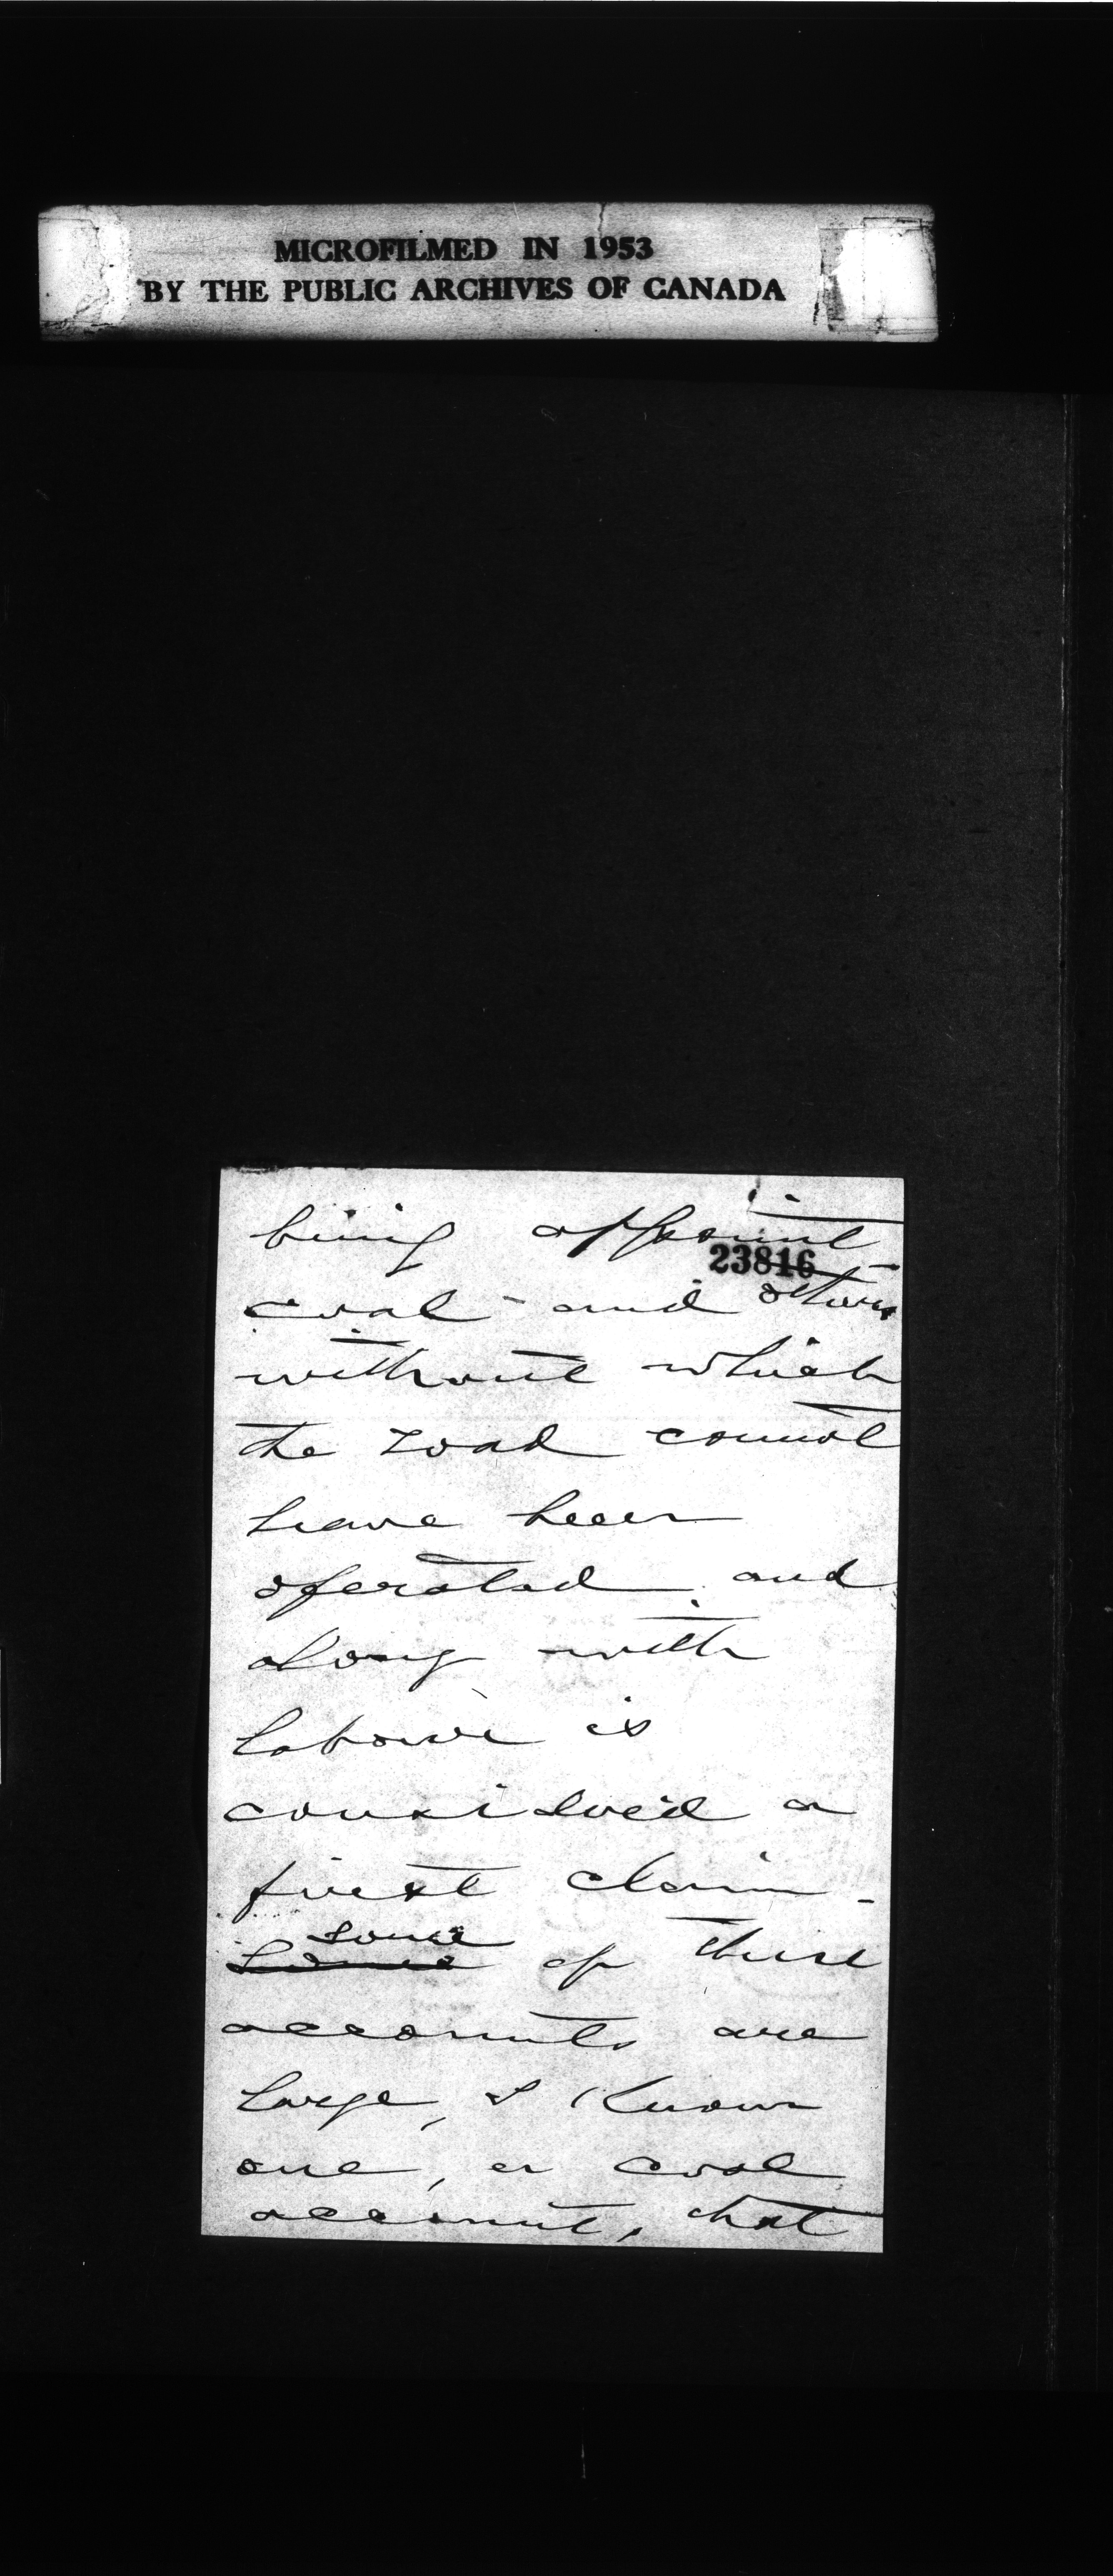 MICROFILMED IN 1953
BY THE PUBLIC ARCHIVES OF CANADA
being
23816
coal and others
without which
the road connot
have been
operated and
along with
labour is
consider'd a
first claim -
some
some of these
accounts are
large, I know
one, a coal
account, that